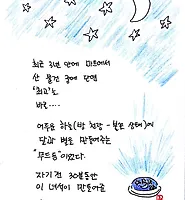 최근 3년 만에 마트에서
산 물건 중에 단연
"최고"는
바로....
어두운 하늘(방 천장 - 불끈 상태)에
달과 별을 만들어주는
"무드등"이었다.
자기 전 30분동안
이 녀석이 만들어줄